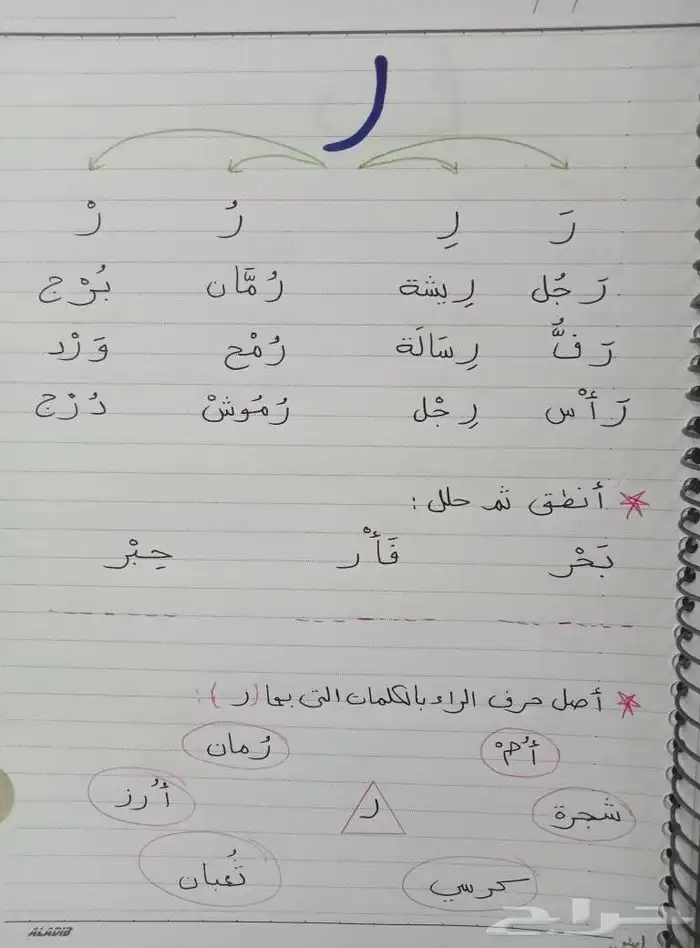 ر
رَ رِ رُ رْ
رَجُل رِيشة رُمَّان بُرْج
رَفٌّ رِسَالَة رُمْح وَرْد
رَأْس رِجْل رُمُوشْ دُرْج
أنطق ثم حلل :
بَحْر فَأْر حِبْر
أصل حرف الراء بالكلمات التي بها (ر) :
رُمان أُمْ
أُرز ر شجرة
ثُعبان كرسي
حراج
ALADIB